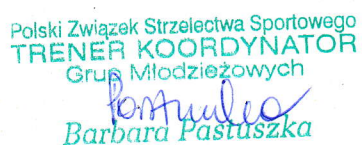 Polski Związek Strzelectwa Sportowego
TRENER KOORDYNATOR
Grup Młodzieżowych
Barbara Pastuszka